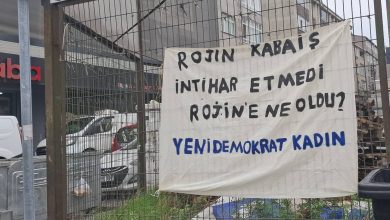 aba
ROJIN KABAİŞ
İNTİHAR ETMEDİ
ROJİN'E NE OLDU?
YENİ DEMOKRAT KADIN